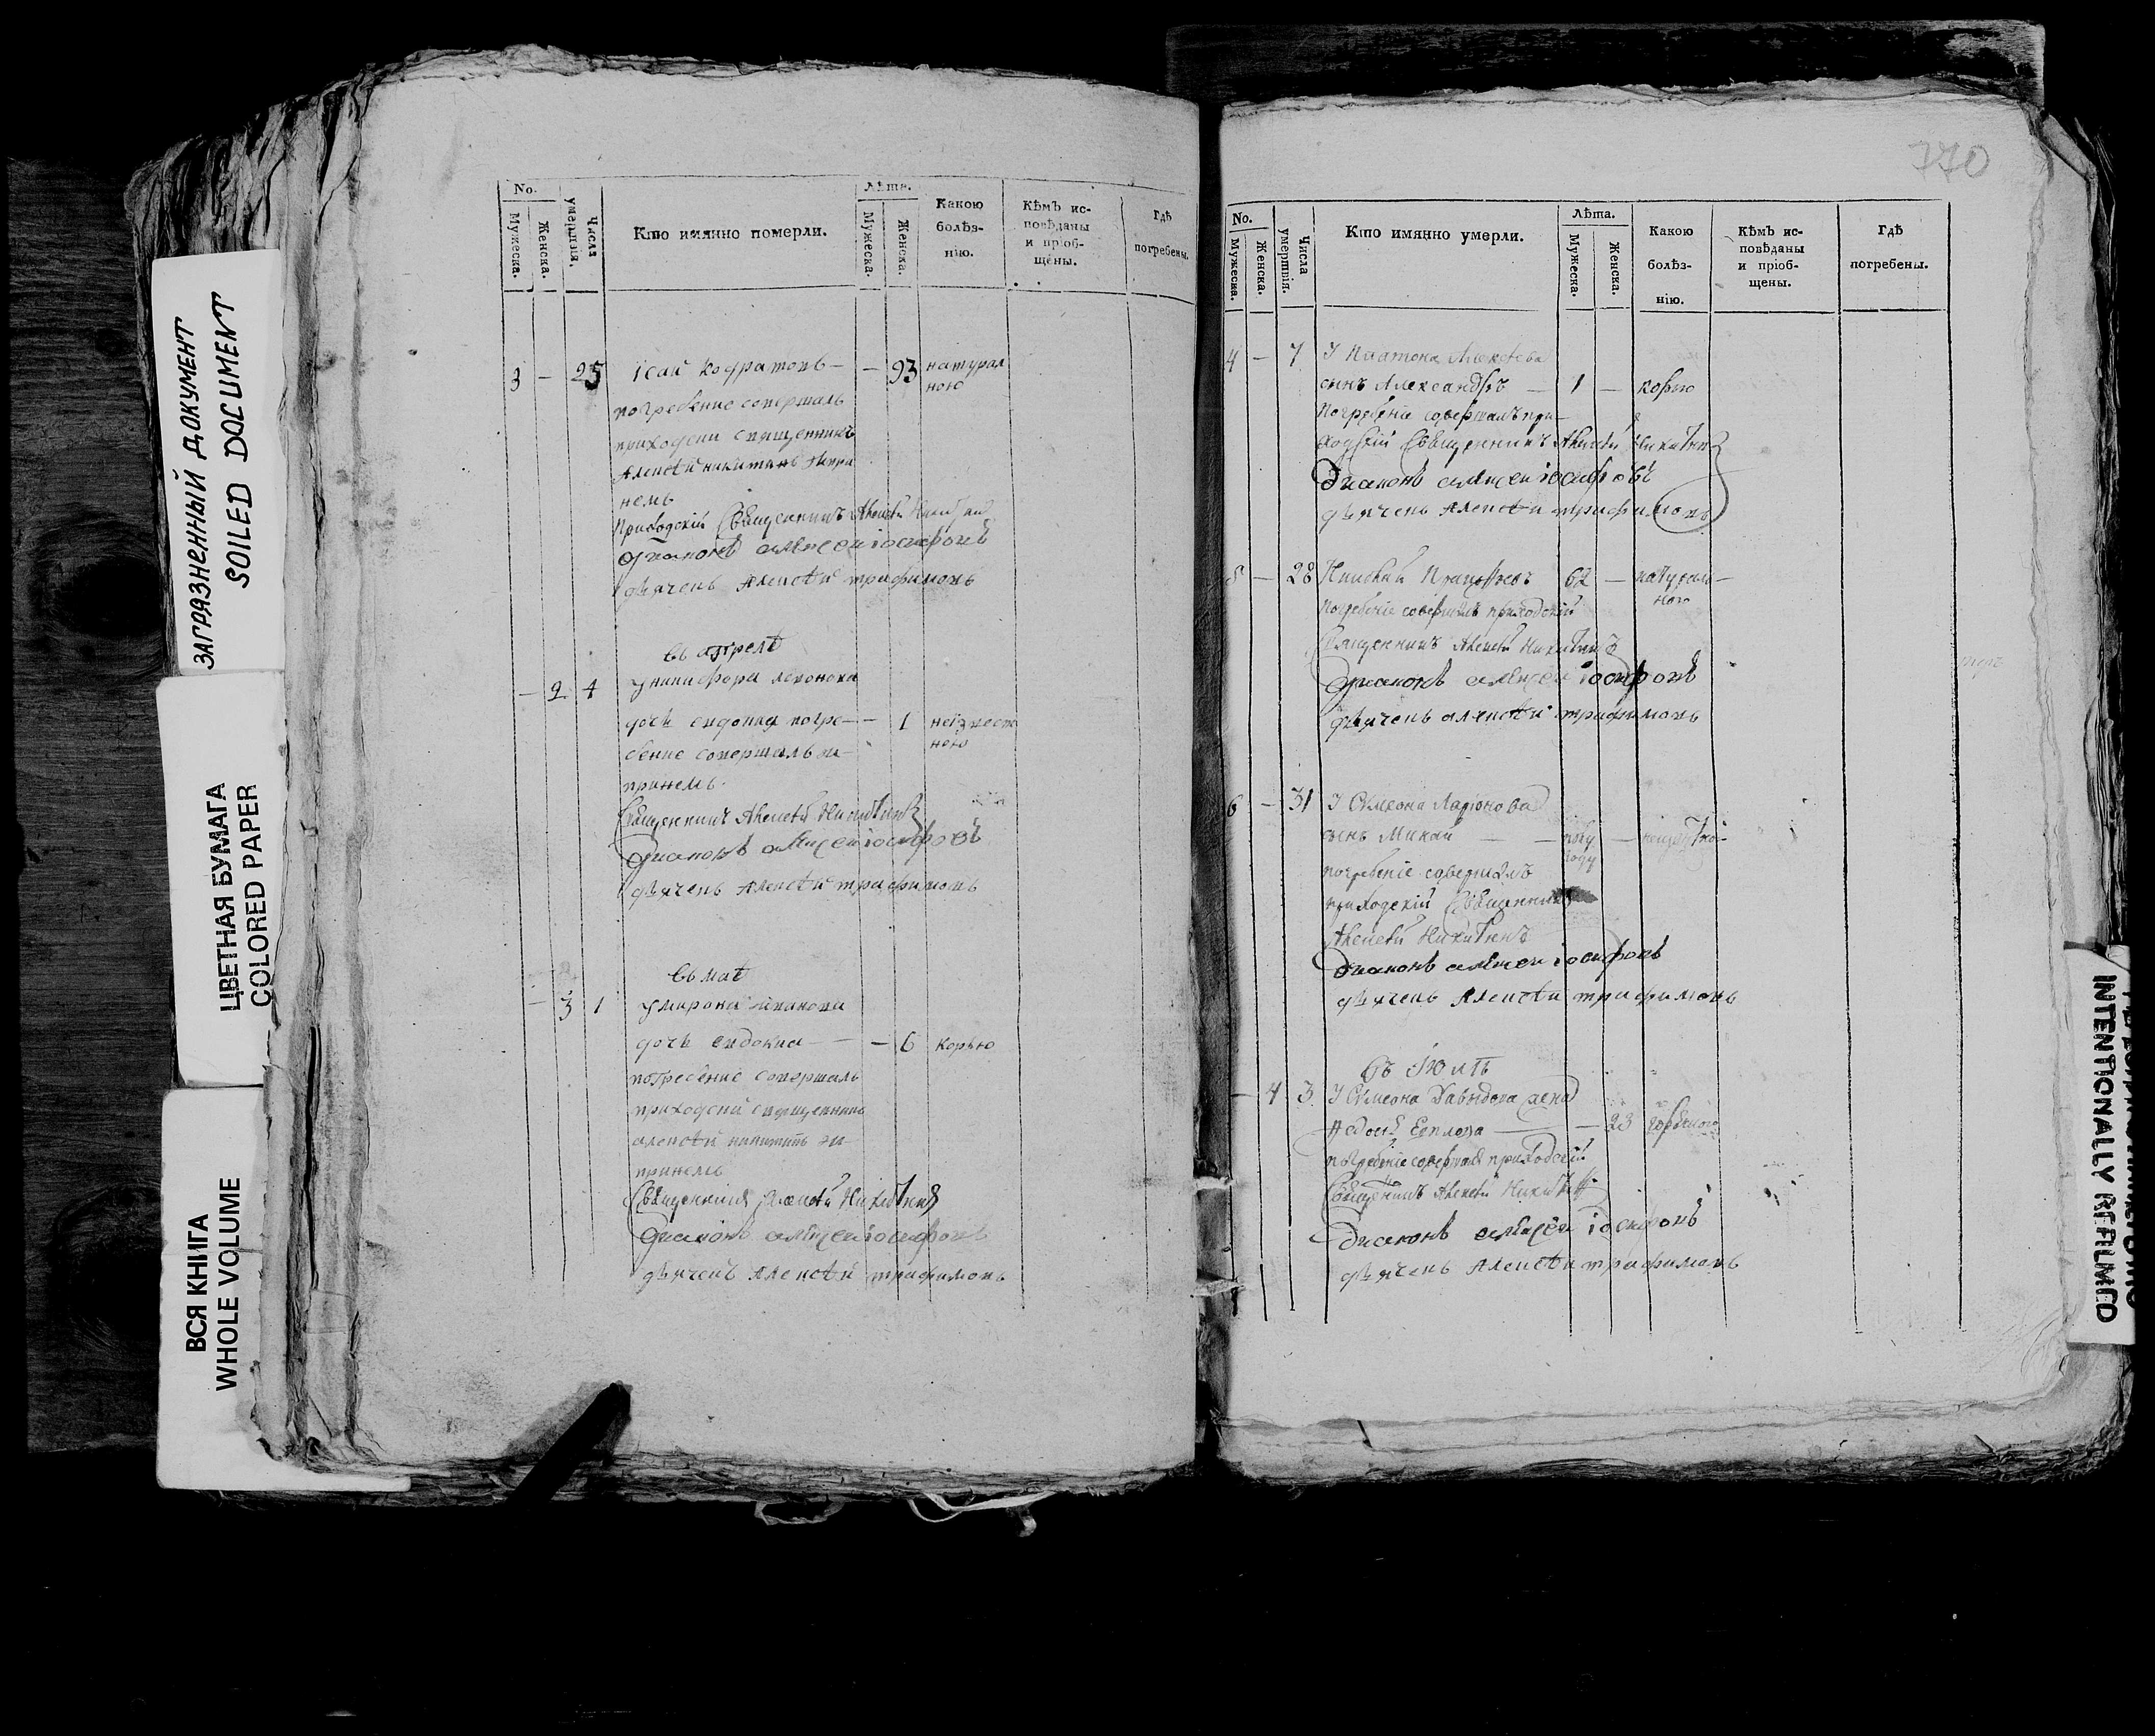 ЗАГРЯЗНЕННЫЙ ДОКУМЕНТ
SOILED DOCUMENT
ЦВЕТНАЯ БУМАГА
COLORED PAPER
ВСЯ КНИГА
WHOLE VOLUME
No.
Мужеска.
Женска.
Числа умертвія.
Кто имянно померли.
Лѣта.
Мужеска.
Женска.
Какою болѣз-
нію.
Кѣмъ ис-
повѣданы
и пріоб-
щены.
Гдѣ
погребены.
3 — 25 Ісай — 93 натурал
ною
погребение совершалъ
приходски священникъ
Алексѣй никитинъ
Приходскій Священникъ Алексѣй
диаконъ алексеи іосифовъ
дьячекъ Алексѣй трифимовъ
въ апрелѣ
— 2 4
дочь евдокия погре— — 1 неизвест
ною
бение совершалъ
Священникъ Алексѣй Никитинъ
Диаконъ алексеи іосифовъ
дьячекъ Алексѣй трифимовъ
въ маѣ
— 3 1 у мирона
дочь евдокиа — — 6 корью
погребение совершалъ
приходски священникъ
алексѣй никитинъ
Священникъ Алексѣй Никитинъ
Диаконъ алексеи іосифовъ
дьячекъ Алексѣй трифимовъ
770
No.
Мужеска.
Женска.
Числа умертвія.
Кто имянно умерли.
Лѣта.
Мужеска.
Женска.
Какою
болѣз-
нію.
Кѣмъ ис-
повѣданы
и пріоб-
щены.
Гдѣ
погребены.
4 — 7 У Платона Алексѣева
сынъ Александръ — 1 — корью
Погребеніе совершалъ при-
ходскій Священникъ Алексѣй Никитинъ
Диаконъ алексеи іосифовъ
дьячекъ Алексѣи трифимовъ
5 — 28 62 — натураль—
ною
погребеніе совершилъ приходскій
Священникъ Алексѣй Никитинъ
Диаконъ алексеи іосифовъ
дьячекъ алексѣи трифимовъ
6 — 31 У Сѵмеона Ларіонова
сынъ — — полу
году —
погребеніе совершилъ
приходскій Священникъ
Алексѣй Никитинъ
Диаконъ алексеи іосифовъ
дьячекъ Алексѣи трифимовъ
въ Июнѣ
— 4 3 У Сѵмеона Давыдова жена
— 23
погребеніе совершалъ приходскій
Священникъ Алексѣй Никитинъ
Диаконъ алексеи іосифовъ
дьячекъ Алексѣи трифимовъ
INTENTIONALLY REFILMED